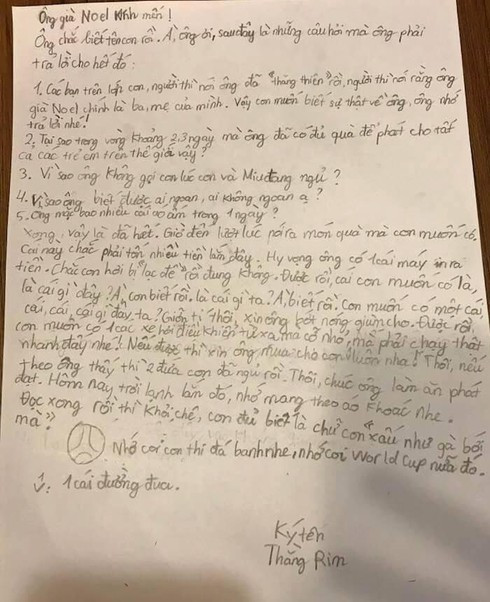 Ông già Noel kính mến!
Ông chắc biết tên con rồi. À, ông ơi, sau đây là những câu hỏi mà ông phải
trả lời cho hết đó:
1. Các bạn trên lớp con, người thì nói ông đã "thăng thiên" rồi, người thì nói rằng ông
già Noel chính là ba, mẹ của mình. Vậy con muốn biết sự thật về ông, ông nhớ
trả lời nhé!
2. Tại sao trong vòng khoảng 2,3 ngày mà ông đã có đủ quà để phát cho tất
cả các trẻ em trên thế giới vậy?
3. Vì sao ông không gọi con lúc con và Miu đang ngủ?
4. Vì sao ông biết được ai ngoan, ai không ngoan ạ?
5. Ông mặc bao nhiêu cái áo ấm trong 1 ngày?
Xong, vậy là đã hết. Giờ đến lượt lúc nói ra món quà mà con muốn có,
Cái này chắc phải tốn nhiều tiền lắm đây. Hy vọng ông có 1 cái máy in ra
tiền. Chắc con hơi bị "lạc đề" rồi đúng không. Được rồi, cái con muốn có là,
là cái gì đây? À, con biết rồi. là cái gì ta? À, biết rồi. Con muốn có một cái,
cái, cái, cái gì đây ta? Giỡn tí thôi, xin ông bớt nóng giùm cho. Được rồi,
con muốn có 1 các xe hơi điều khiển từ xa, mà cỡ nhỏ, mà phải chạy thật
nhanh đấy nhe! Nếu được thì xin ông mua cho con luôn nha! Thôi, nếu
theo ông thấy thì 2 đứa con đã ngủ rồi. Thôi, chúc ông làm ăn phát
đạt. Hôm nay trời lạnh lắn đó, nhớ mang theo áo khoác nhe.
Đọc xong rồi thì khỏi chê, con đủ biết là chữ con "xấu như gà bới
mà"
Nhớ coi con thi đá banh nhe, nhớ coi World Cup nữa đó.
1 cái đường đua.
Ký tên
Thằng Rim